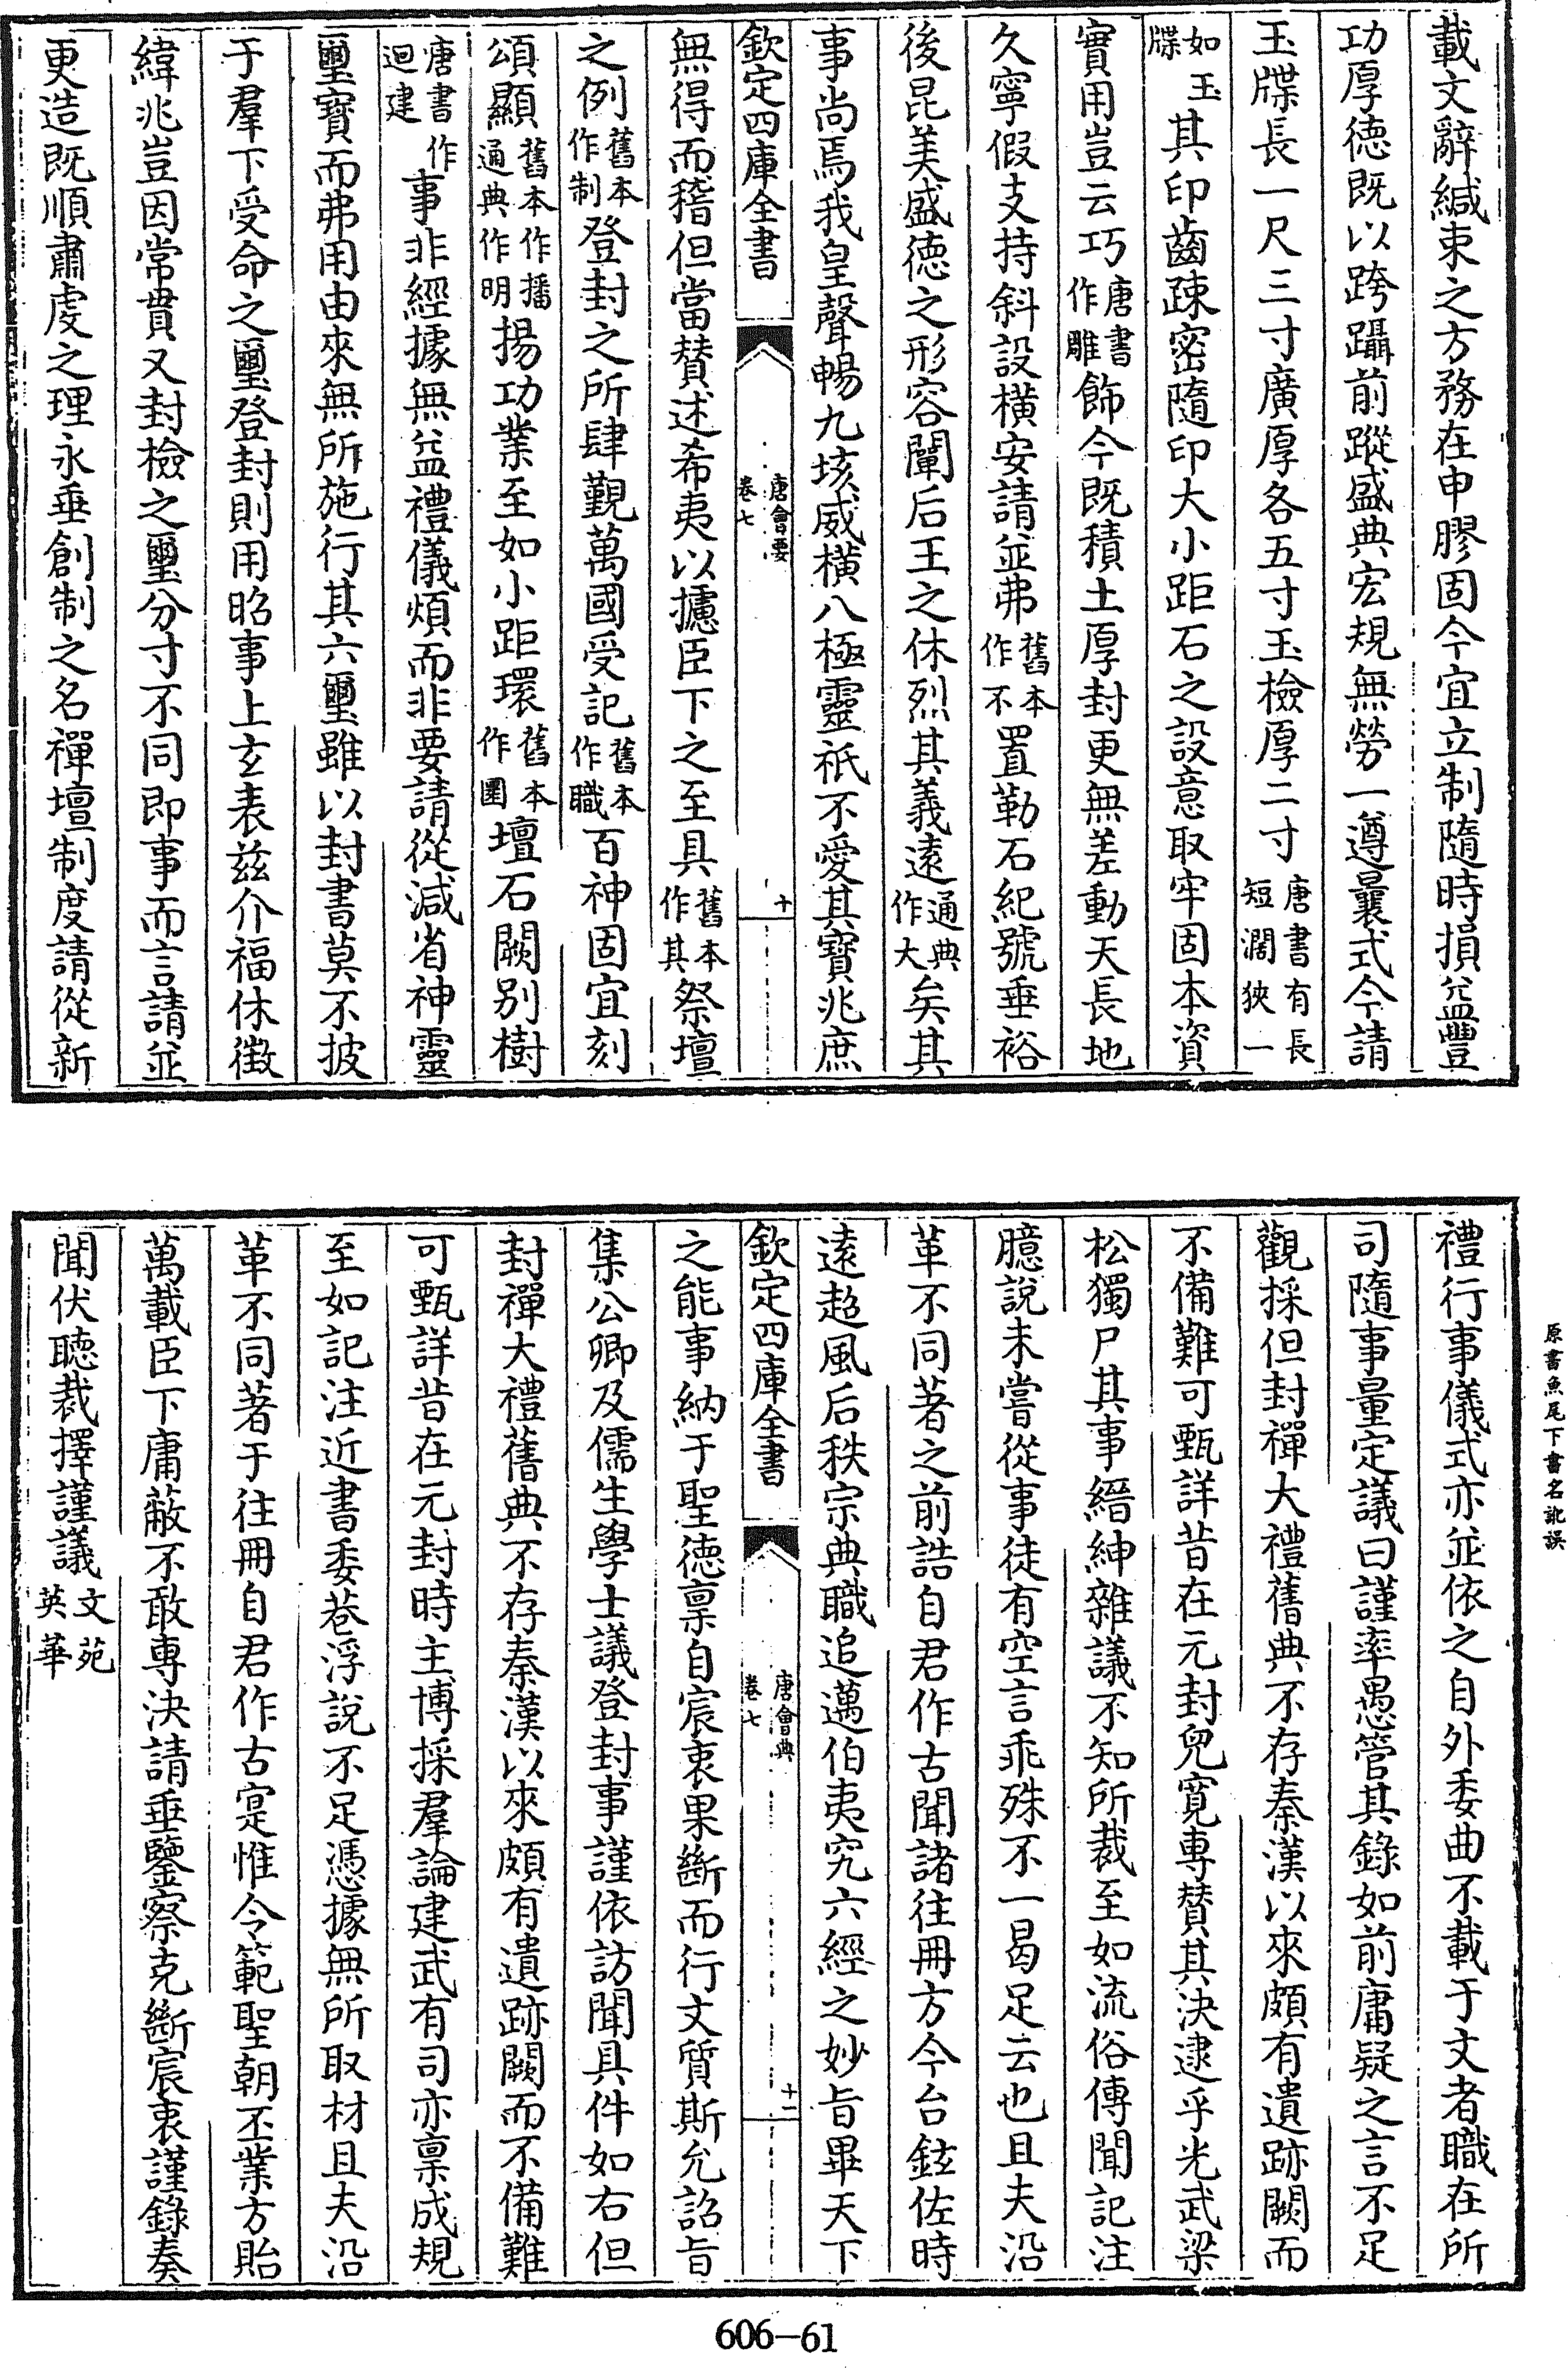 載文辭緘束之方務在申膠固今宜立制隨時損益豐
功厚德既以跨躡前蹤盛典宏規無勞一遵曩式今請
玉牒長一尺三寸廣厚各五寸玉檢厚二寸唐書有長短濶狹一
如玉牒其印齒疎密隨印大小距石之設意取牢固本資
實用豈云巧唐書作雕飾今既積土厚封更無差動天長地
久寧假支持斜設橫安請並弗舊本作不置勒石紀號垂裕
後昆美盛德之形容闡后王之休烈其義遠通典作大矣其
事尚焉我皇聲暢九垓威橫八極靈祇不愛其寶兆庶
欽定四庫全書
唐會要
卷七
十
無得而稽但當贊述希夷以攄臣下之至具舊本作其祭壇
之例舊本作制登封之所肆覲萬國受記舊本作職百神固宜刻
頌顯舊本作播通典作明揚功業至如小距環舊本作圜壇石闕別樹
唐書作迴建事非經據無益禮儀煩而非要請從減省神靈
璽寶而弗用由來無所施行其六璽雖以封書莫不披
于羣下受命之璽登封則用昭事上玄表兹介福休徵
緯兆豈因常貫又封檢之璽分寸不同即事而言請並
更造既順肅虔之理永垂創制之名禪壇制度請從新
禮行事儀式亦並依之自外委曲不載于文者職在所
司隨事量定議曰謹率愚管其錄如前庸疑之言不足
觀採但封禪大禮舊典不存秦漢以來頗有遺跡闕而
不備難可甄詳昔在元封兒寬專贊其決逮乎光武梁
松獨尸其事縉紳雜議不知所裁至如流俗傳聞記注
臆說未嘗從事徒有空言乖殊不一曷足云也且夫沿
革不同著之前誥自君作古聞諸往冊方今台鉉佐時
遠超風后秩宗典職追邁伯夷究六經之妙旨畢天下
欽定四庫全書
唐會典
卷七
十一
之能事納于聖德禀自宸衷果斷而行文質斯允詔旨
集公卿及儒生學士議登封事謹依訪聞具件如右但
封禪大禮舊典不存秦漢以來頗有遺跡闕而不備難
可甄詳昔在元封時主博採羣論建武有司亦禀成規
至如記注近書委巷浮說不足憑據無所取材且夫沿
革不同著于往冊自君作古寔惟令範聖朝丕業方貽
萬載臣下庸蔽不敢專決請垂鑒察克斷宸衷謹錄奏
聞伏聽裁擇謹議文苑英華
原書魚尾下書名訛誤
606—61